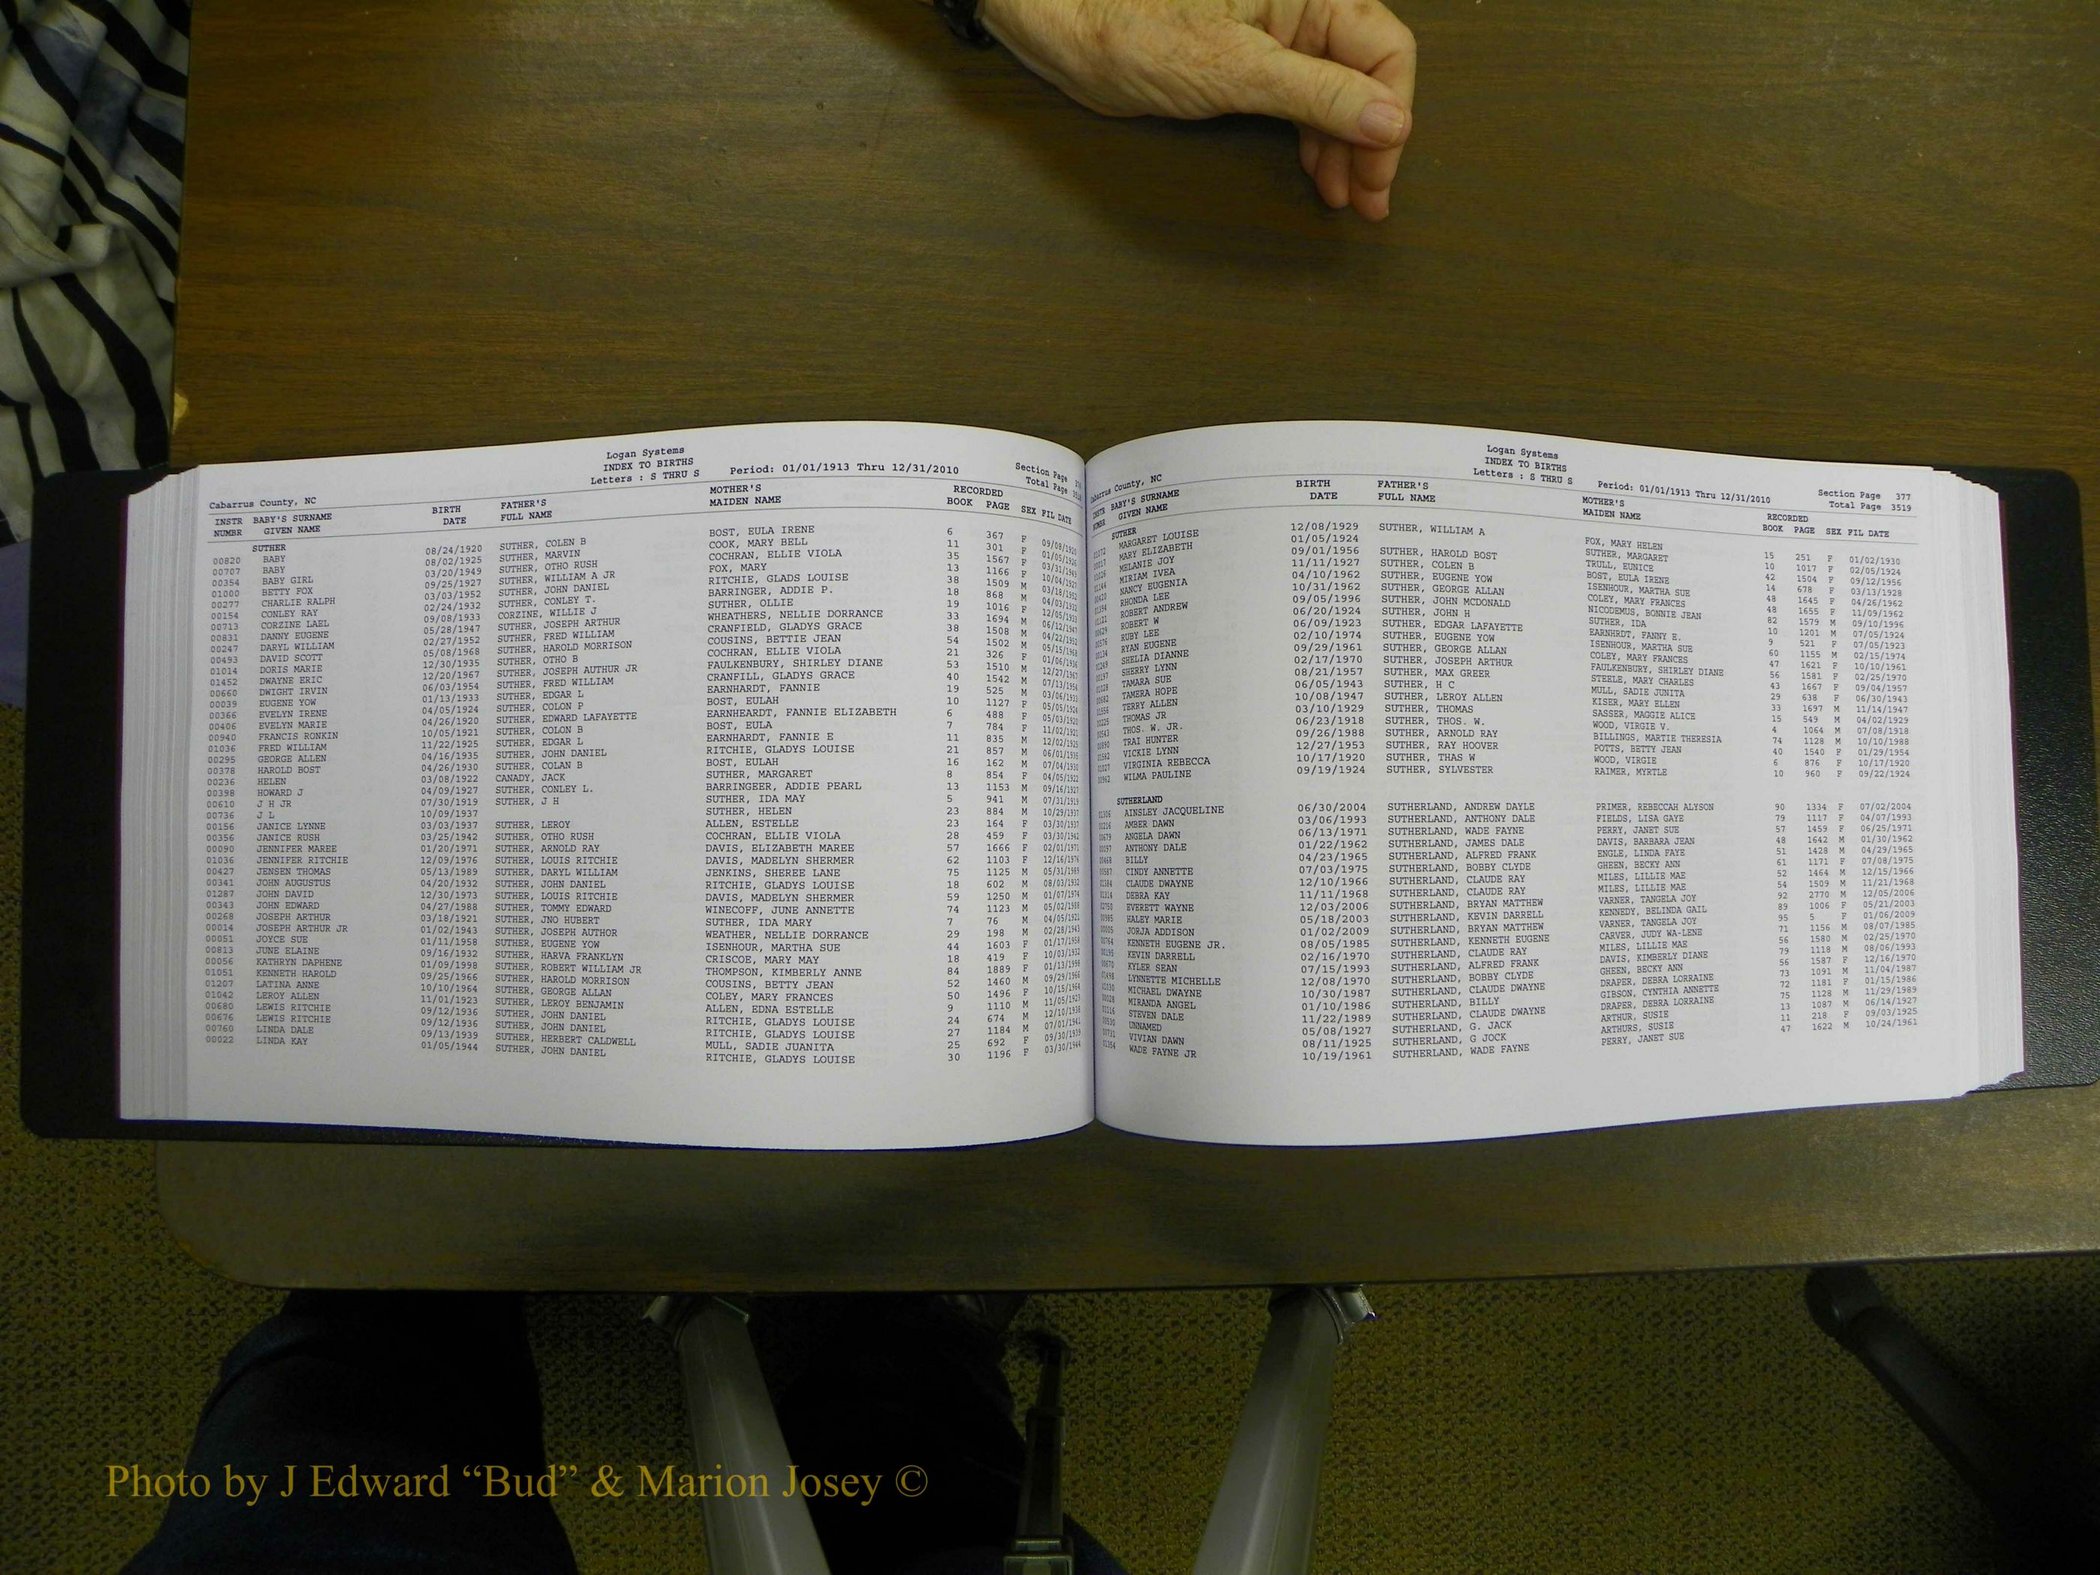 Logan Systems
INDEX TO BIRTHS
Letters : S THRU S Period: 01/01/1913 Thru 12/31/2010
Section Page
Total Page
Cabarrus County, NC
INSTR BABY'S SURNAME BIRTH FATHER'S MOTHER'S RECORDED
NUMBR GIVEN NAME DATE FULL NAME MAIDEN NAME BOOK PAGE SEX FIL DATE
SUTHER
00820 BABY 08/24/1920 SUTHER, COLEN B BOST, EULA IRENE 6 367 F 09/08/1920
00707 BABY 08/02/1925 SUTHER, MARVIN COOK, MARY BELL 11 301 F 01/05/1926
00354 BABY GIRL 03/20/1949 SUTHER, OTHO RUSH COCHRAN, ELLIE VIOLA 35 1567 F 03/31/1949
01000 BETTY FOX 09/25/1927 SUTHER, WILLIAM A JR FOX, MARY 13 1166 F 10/04/1927
00277 CHARLIE RALPH 03/03/1952 SUTHER, JOHN DANIEL RITCHIE, GLADS LOUISE 38 1509 M 03/18/1952
00154 CONLEY RAY 02/24/1932 SUTHER, CONLEY T. BARRINGER, ADDIE P. 18 868 M 04/03/1932
00713 CORZINE LAEL 09/08/1933 CORZINE, WILLIE J SUTHER, OLLIE 19 1016 F 12/05/1933
00831 DANNY EUGENE 05/28/1947 SUTHER, JOSEPH ARTHUR WHEATHERS, NELLIE DORRANCE 33 1694 M 06/12/1947
00247 DARYL WILLIAM 02/27/1952 SUTHER, FRED WILLIAM CRANFIELD, GLADYS GRACE 38 1508 M 04/22/1952
00493 DAVID SCOTT 05/08/1968 SUTHER, HAROLD MORRISON COUSINS, BETTIE JEAN 54 1502 M 05/15/1968
01014 DORIS MARIE 12/30/1935 SUTHER, OTHO B COCHRAN, ELLIE VIOLA 21 326 F 01/06/1936
01452 DWAYNE ERIC 12/20/1967 SUTHER, JOSEPH AUTHUR JR FAULKENBURY, SHIRLEY DIANE 53 1510 M 12/27/1967
00660 DWIGHT IRVIN 06/03/1954 SUTHER, FRED WILLIAM CRANFILL, GLADYS GRACE 40 1542 M 07/13/1954
00039 EUGENE YOW 01/13/1933 SUTHER, EDGAR L EARNHARDT, FANNIE 19 525 M 03/06/1933
00366 EVELYN IRENE 04/05/1924 SUTHER, COLON P BOST, EULAH 10 1127 F 05/05/1924
00406 EVELYN MARIE 04/26/1920 SUTHER, EDWARD LAFAYETTE EARNHEARDT, FANNIE ELIZABETH 6 488 F 05/03/1920
00940 FRANCIS RONKIN 10/05/1921 SUTHER, COLON B BOST, EULA 7 784 F 11/02/1921
01036 FRED WILLIAM 11/22/1925 SUTHER, EDGAR L EARNHARDT, FANNIE E 11 835 M 12/02/1925
00295 GEORGE ALLEN 04/16/1935 SUTHER, JOHN DANIEL RITCHIE, GLADYS LOUISE 21 857 M 06/01/1935
00378 HAROLD BOST 04/26/1930 SUTHER, COLAN B BOST, EULAH 16 162 M 07/04/1930
00236 HELEN 03/08/1922 CANADY, JACK SUTHER, MARGARET 8 854 F 04/05/1922
00398 HOWARD J 04/09/1927 SUTHER, CONLEY L. BARRINGEER, ADDIE PEARL 13 1153 M 09/16/1927
00610 J H JR 07/30/1919 SUTHER, J H SUTHER, IDA MAY 5 941 M 07/31/1919
00736 J L 10/09/1937 SUTHER, HELEN 23 884 M 10/29/1937
00156 JANICE LYNNE 03/03/1937 SUTHER, LEROY ALLEN, ESTELLE 23 164 F 03/30/1937
00356 JANICE RUSH 03/25/1942 SUTHER, OTHO RUSH COCHRAN, ELLIE VIOLA 28 459 F 03/30/1942
00090 JENNIFER MAREE 01/20/1971 SUTHER, ARNOLD RAY DAVIS, ELIZABETH MAREE 57 1666 F 02/01/1971
01036 JENNIFER RITCHIE 12/09/1976 SUTHER, LOUIS RITCHIE DAVIS, MADELYN SHERMER 62 1103 F 12/16/1976
00427 JENSEN THOMAS 05/13/1989 SUTHER, DARYL WILLIAM JENKINS, SHEREE LANE 75 1125 M 05/31/1989
00341 JOHN AUGUSTUS 04/20/1932 SUTHER, JOHN DANIEL RITCHIE, GLADYS LOUISE 18 602 M 08/03/1932
01287 JOHN DAVID 12/30/1973 SUTHER, LOUIS RITCHIE DAVIS, MADELYN SHERMER 59 1250 M 01/07/1974
00343 JOHN EDWARD 04/27/1988 SUTHER, TOMMY EDWARD WINECOFF, JUNE ANNETTE 74 1123 M 05/02/1988
00268 JOSEPH ARTHUR 03/18/1921 SUTHER, JNO HUBERT SUTHER, IDA MARY 7 76 M 04/05/1921
00014 JOSEPH ARTHUR JR 01/02/1943 SUTHER, JOSEPH AUTHOR WEATHER, NELLIE DORRANCE 29 198 M 02/28/1943
00051 JOYCE SUE 01/11/1958 SUTHER, EUGENE YOW ISENHOUR, MARTHA SUE 44 1603 F 01/17/1958
00813 JUNE ELAINE 09/16/1932 SUTHER, HARVA FRANKLYN CRISCOE, MARY MAY 18 419 F 10/03/1932
00056 KATHRYN DAPHENE 01/09/1998 SUTHER, ROBERT WILLIAM JR THOMPSON, KIMBERLY ANNE 84 1889 F 01/13/1998
01051 KENNETH HAROLD 09/25/1966 SUTHER, HAROLD MORRISON COUSINS, BETTY JEAN 52 1460 M 09/29/1966
01207 LATINA ANNE 10/10/1964 SUTHER, GEORGE ALLAN COLEY, MARY FRANCES 50 1496 F 10/15/1964
01042 LEROY ALLEN 11/01/1923 SUTHER, LEROY BENJAMIN ALLEN, EDNA ESTELLE 9 1110 M 11/05/1923
00680 LEWIS RITCHIE 09/12/1936 SUTHER, JOHN DANIEL RITCHIE, GLADYS LOUISE 24 674 M 12/10/1936
00676 LEWIS RITCHIE 09/12/1936 SUTHER, JOHN DANIEL RITCHIE, GLADYS LOUISE 27 1184 M 07/01/1941
00760 LINDA DALE 09/13/1939 SUTHER, HERBERT CALDWELL MULL, SADIE JUANITA 25 692 F 09/30/1939
00022 LINDA KAY 01/05/1944 SUTHER, JOHN DANIEL RITCHIE, GLADYS LOUISE 30 1196 F 03/30/1944
Logan Systems
INDEX TO BIRTHS
Letters : S THRU S Period: 01/01/1913 Thru 12/31/2010
Section Page 377
Total Page 3519
Cabarrus County, NC
INSTR BABY'S SURNAME BIRTH FATHER'S MOTHER'S RECORDED
NUMBR GIVEN NAME DATE FULL NAME MAIDEN NAME BOOK PAGE SEX FIL DATE
SUTHER
MARGARET LOUISE 12/08/1929 SUTHER, WILLIAM A FOX, MARY HELEN 15 251 F 01/02/1930
MARY ELIZABETH 01/05/1924 SUTHER, MARGARET 10 1017 F 02/05/1924
MELANIE JOY 09/01/1956 SUTHER, HAROLD BOST TRULL, EUNICE 42 1504 F 09/12/1956
MIRIAM IVEA 11/11/1927 SUTHER, COLEN B BOST, EULA IRENE 14 678 F 03/13/1928
NANCY EUGENIA 04/10/1962 SUTHER, EUGENE YOW ISENHOUR, MARTHA SUE 48 1645 F 04/26/1962
RHONDA LEE 10/31/1962 SUTHER, GEORGE ALLAN COLEY, MARY FRANCES 48 1655 F 11/09/1962
ROBERT ANDREW 09/05/1996 SUTHER, JOHN MCDONALD NICODEMUS, BONNIE JEAN 82 1579 M 09/10/1996
ROBERT W 06/20/1924 SUTHER, JOHN H SUTHER, IDA 10 1201 M 07/05/1924
RUBY LEE 06/09/1923 SUTHER, EDGAR LAFAYETTE EARNHRDT, FANNY E. 9 521 F 07/05/1923
RYAN EUGENE 02/10/1974 SUTHER, EUGENE YOW ISENHOUR, MARTHA SUE 60 1155 M 02/15/1974
SHELIA DIANNE 09/29/1961 SUTHER, GEORGE ALLAN COLEY, MARY FRANCES 47 1621 F 10/10/1961
SHERRY LYNN 02/17/1970 SUTHER, JOSEPH ARTHUR FAULKENBURY, SHIRLEY DIANE 56 1581 F 02/25/1970
TAMARA SUE 08/21/1957 SUTHER, MAX GREER STEELE, MARY CHARLES 43 1667 F 09/04/1957
TAMERA HOPE 06/05/1943 SUTHER, H C MULL, SADIE JUNITA 29 638 F 06/30/1943
TERRY ALLEN 10/08/1947 SUTHER, LEROY ALLEN KISER, MARY ELLEN 33 1697 M 11/14/1947
THOMAS JR 03/10/1929 SUTHER, THOMAS SASSER, MAGGIE ALICE 15 549 M 04/02/1929
THOS. W. JR. 06/23/1918 SUTHER, THOS. W. WOOD, VIRGIE V. 4 1064 M 07/08/1918
TRAI HUNTER 09/26/1988 SUTHER, ARNOLD RAY BILLINGS, MARTIE THERESIA 74 1128 M 10/10/1988
VICKIE LYNN 12/27/1953 SUTHER, RAY HOOVER POTTS, BETTY JEAN 40 1540 F 01/29/1954
VIRGINIA REBECCA 10/17/1920 SUTHER, THAS W WOOD, VIRGIE 6 876 F 10/17/1920
WILMA PAULINE 09/19/1924 SUTHER, SYLVESTER RAIMER, MYRTLE 10 960 F 09/22/1924
SUTHERLAND
AINSLEY JACQUELINE 06/30/2004 SUTHERLAND, ANDREW DAYLE PRIMER, REBECCAH ALYSON 90 1334 F 07/02/2004
AMBER DAWN 03/06/1993 SUTHERLAND, ANTHONY DALE FIELDS, LISA GAYE 79 1117 F 04/07/1993
ANGELA DAWN 06/13/1971 SUTHERLAND, WADE FAYNE PERRY, JANET SUE 57 1459 F 06/25/1971
ANTHONY DALE 01/22/1962 SUTHERLAND, JAMES DALE DAVIS, BARBARA JEAN 48 1642 M 01/30/1962
BILLY 04/23/1965 SUTHERLAND, ALFRED FRANK ENGLE, LINDA FAYE 51 1428 M 04/29/1965
CINDY ANNETTE 07/03/1975 SUTHERLAND, BOBBY CLYDE GHEEN, BECKY ANN 61 1171 F 07/08/1975
CLAUDE DWAYNE 12/10/1966 SUTHERLAND, CLAUDE RAY MILES, LILLIE MAE 52 1464 M 12/15/1966
DEBRA KAY 11/11/1968 SUTHERLAND, CLAUDE RAY MILES, LILLIE MAE 54 1509 M 11/21/1968
EVERETT WAYNE 12/03/2006 SUTHERLAND, BRYAN MATTHEW VARNER, TANGELA JOY 92 2770 M 12/05/2006
HALEY MARIE 05/18/2003 SUTHERLAND, KEVIN DARRELL KENNEDY, BELINDA GAIL 89 1006 F 05/21/2003
JORJA ADDISON 01/02/2009 SUTHERLAND, BRYAN MATTHEW VARNER, TANGELA JOY 95 5 F 01/06/2009
KENNETH EUGENE JR. 08/05/1985 SUTHERLAND, KENNETH EUGENE CARVER, JUDY WA-LENE 71 1156 M 08/07/1985
KEVIN DARRELL 02/16/1970 SUTHERLAND, CLAUDE RAY MILES, LILLIE MAE 56 1580 M 02/25/1970
KYLER SEAN 07/15/1993 SUTHERLAND, ALFRED FRANK DAVIS, KIMBERLY DIANE 79 1118 M 08/06/1993
LYNNETTE MICHELLE 12/08/1970 SUTHERLAND, BOBBY CLYDE GHEEN, BECKY ANN 56 1587 F 12/16/1970
MICHAEL DWAYNE 10/30/1987 SUTHERLAND, CLAUDE DWAYNE DRAPER, DEBRA LORRAINE 73 1091 M 11/04/1987
MIRANDA ANGEL 01/10/1986 SUTHERLAND, BILLY GIBSON, CYNTHIA ANNETTE 72 1181 F 01/15/1986
STEVEN DALE 11/22/1989 SUTHERLAND, CLAUDE DWAYNE DRAPER, DEBRA LORRAINE 75 1128 M 11/29/1989
UNNAMED 05/08/1927 SUTHERLAND, G. JACK ARTHUR, SUSIE 13 1087 M 06/14/1927
VIVIAN DAWN 08/11/1925 SUTHERLAND, G JOCK ARTHURS, SUSIE 11 218 F 09/03/1925
WADE FAYNE JR 10/19/1961 SUTHERLAND, WADE FAYNE PERRY, JANET SUE 47 1622 M 10/24/1961
Photo by J Edward “Bud” & Marion Josey ©